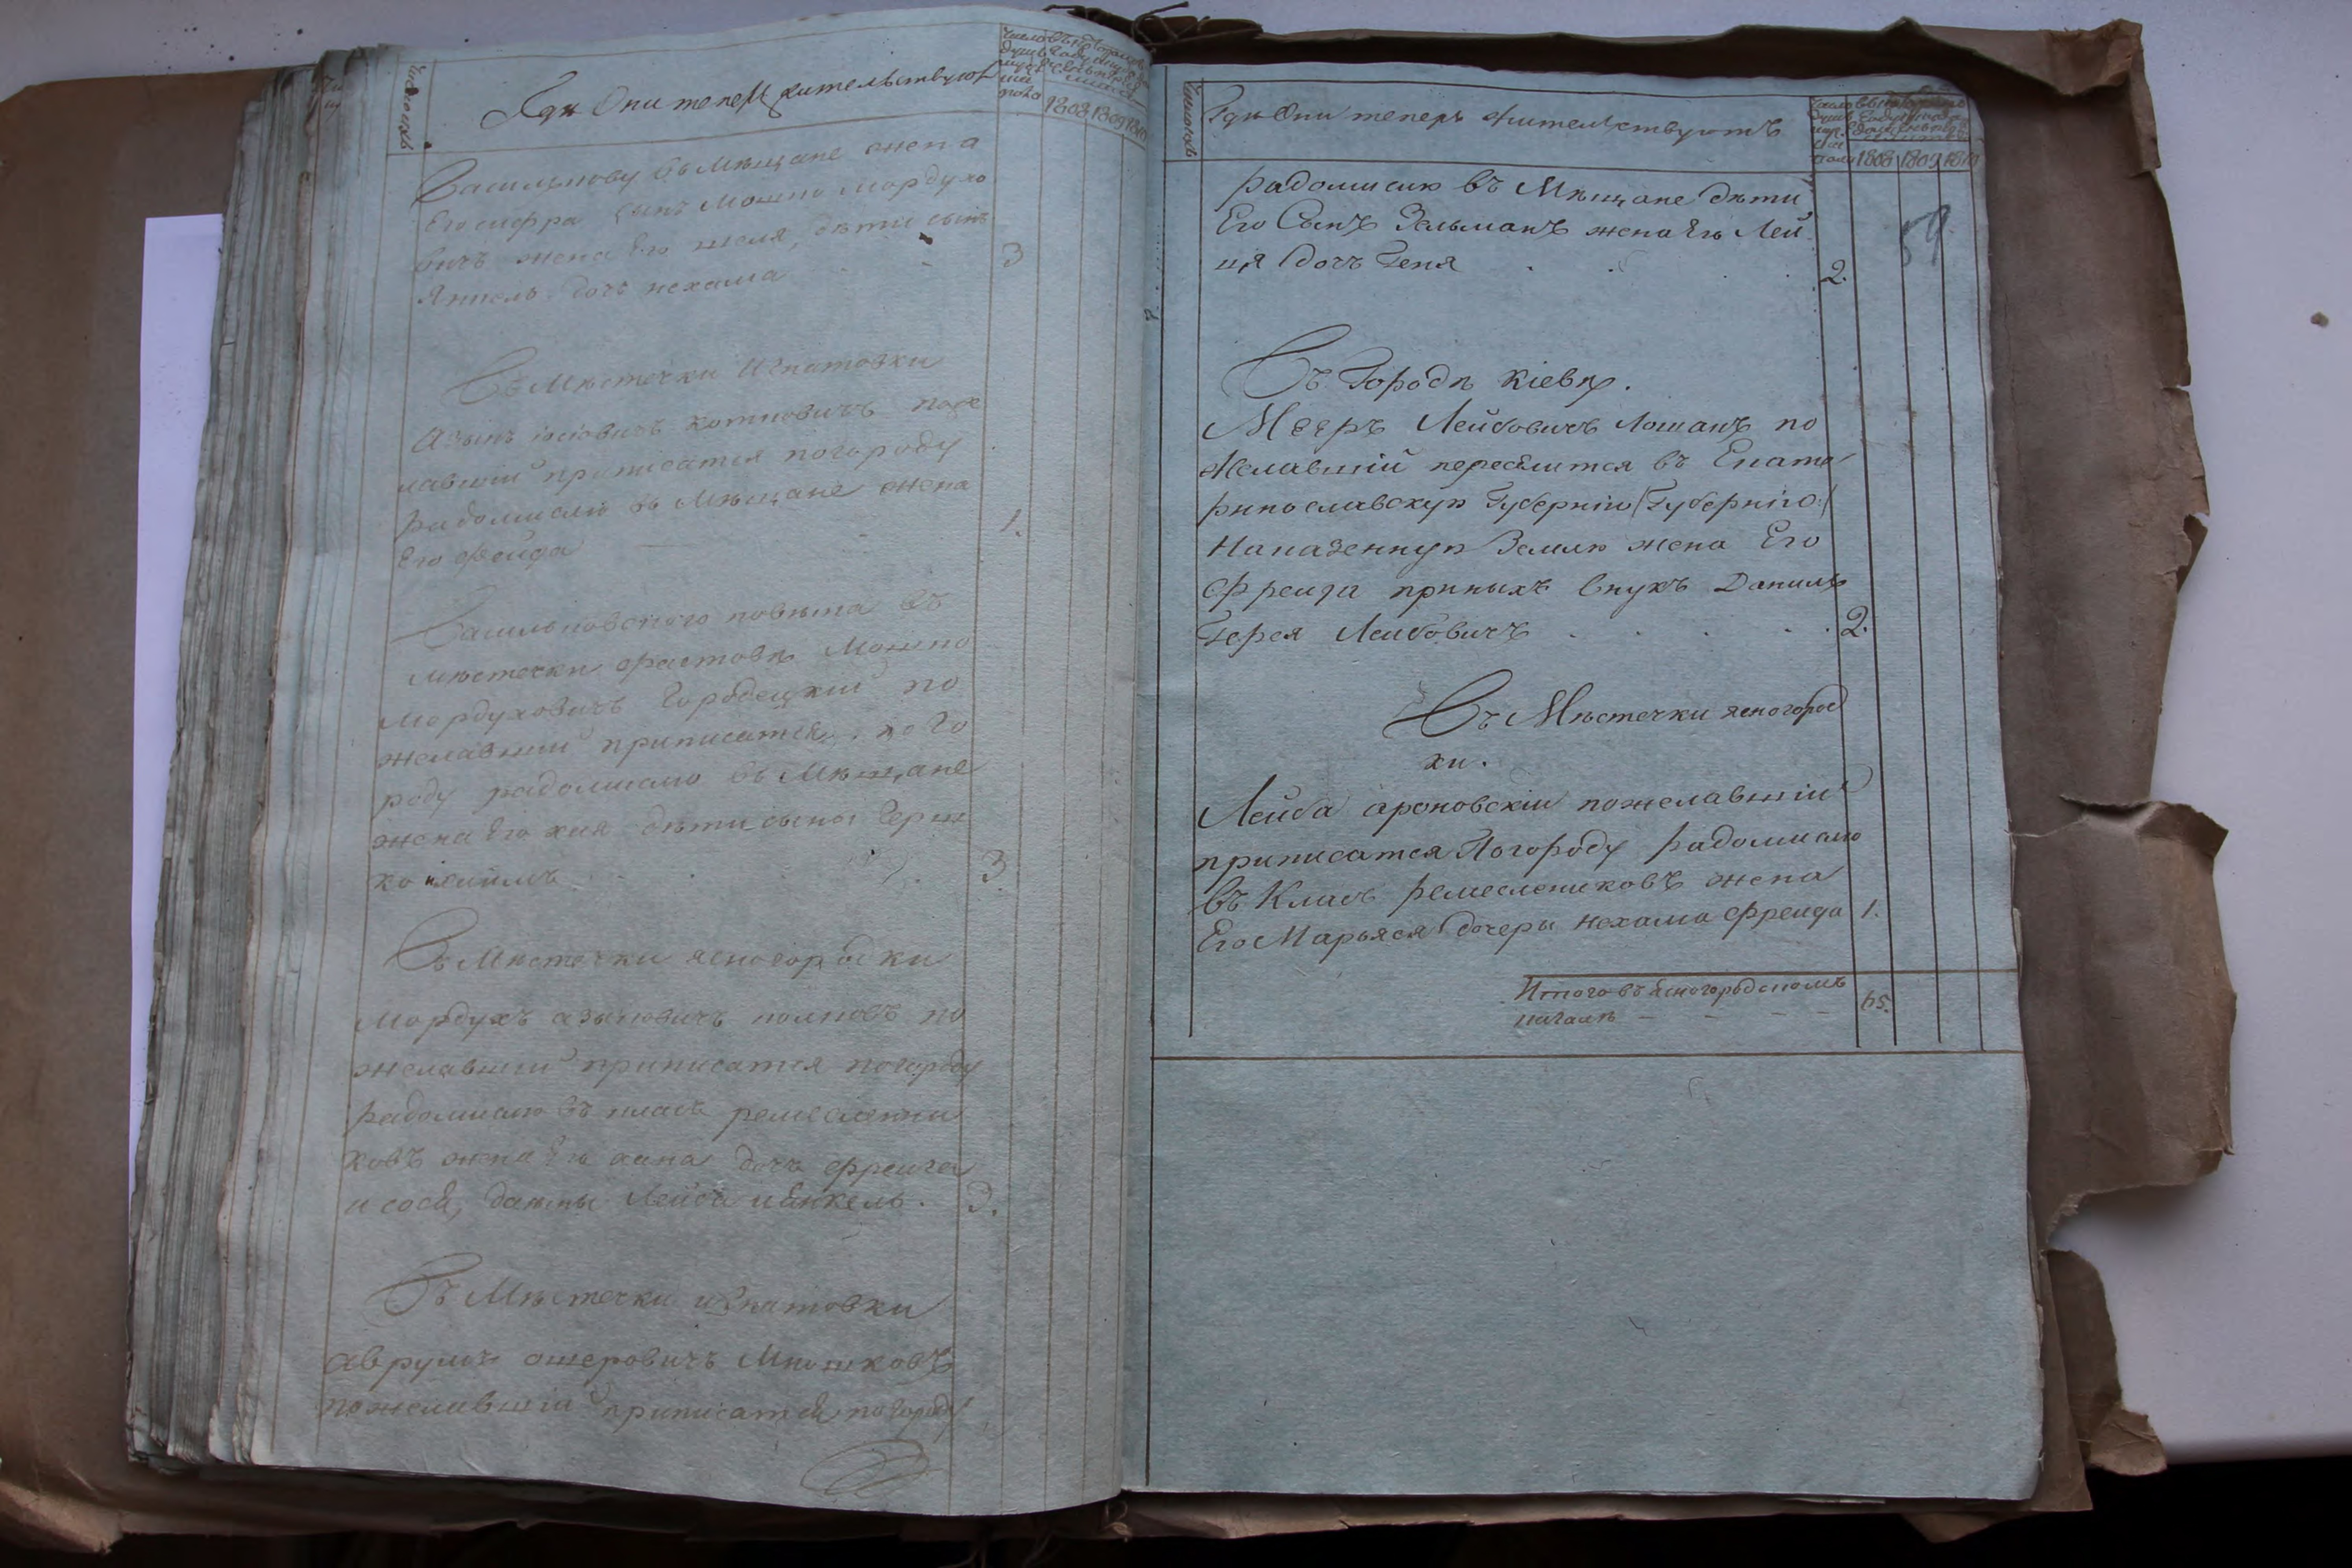 Гдѣ Они теперь жительствуютъ
1808 1809 1810
Василькову въ Мѣщане жена
Его шифра сынъ Мошко Мордухо
вичъ жена Его шеля, дѣти сынъ
Янкель дочь нехама 3
Въ Мѣстечки Игнатовки
Азыкъ Іосіовичъ котковичъ поже
лавшій приписатся погороду
радомислю въ Мѣщане жена
Его фейга 1.
Васильковского повѣта въ
мѣстечки фастовѣ Мошко
Мордуховичъ Городецкій по
желавший приписатся пого
роду радомислю въ Мѣщане
жена Его хия дѣти сыны Герш
ко 3.
Въ Мѣстечки ясногородки
Мордухъ азыковичъ по
желавший приписатся погороду
радомислю въ класъ ремесленни
ковъ жена Его хана дочь фреига
и сося, Лейба иянкель. 3.
Въ Мѣстечки игнатовки
аврумъ ошеровичъ Мошковъ
пожелавший приписатся погороду
Гдѣ Они теперь жительствуютъ
1808 1809 1810
59
радомислю въ Мѣщане дѣти
Его Сынъ Зельманъ жена Его Лей
ця дочъ Геня 2.
Въ Городѣ Кіевѣ.
Мееръ Лейбовичъ Лошакъ по
желавшій переселится въ Екате
ринославскую Губернію (Губернію)
Наказенную Землю жена Его
Фреида приныхъ внукъ Данило
Герся Леибовичъ 2.
Въ Мѣстечки ясногород
ки.
Лейба ароновскій пожелавшій
приписатся Погороду радомислю
въ Класъ ремеслениковъ жена
Его Марьяся дочеры нехама фреида 1.
Итого въ Ясногородскомъ
кагалѣ 65.